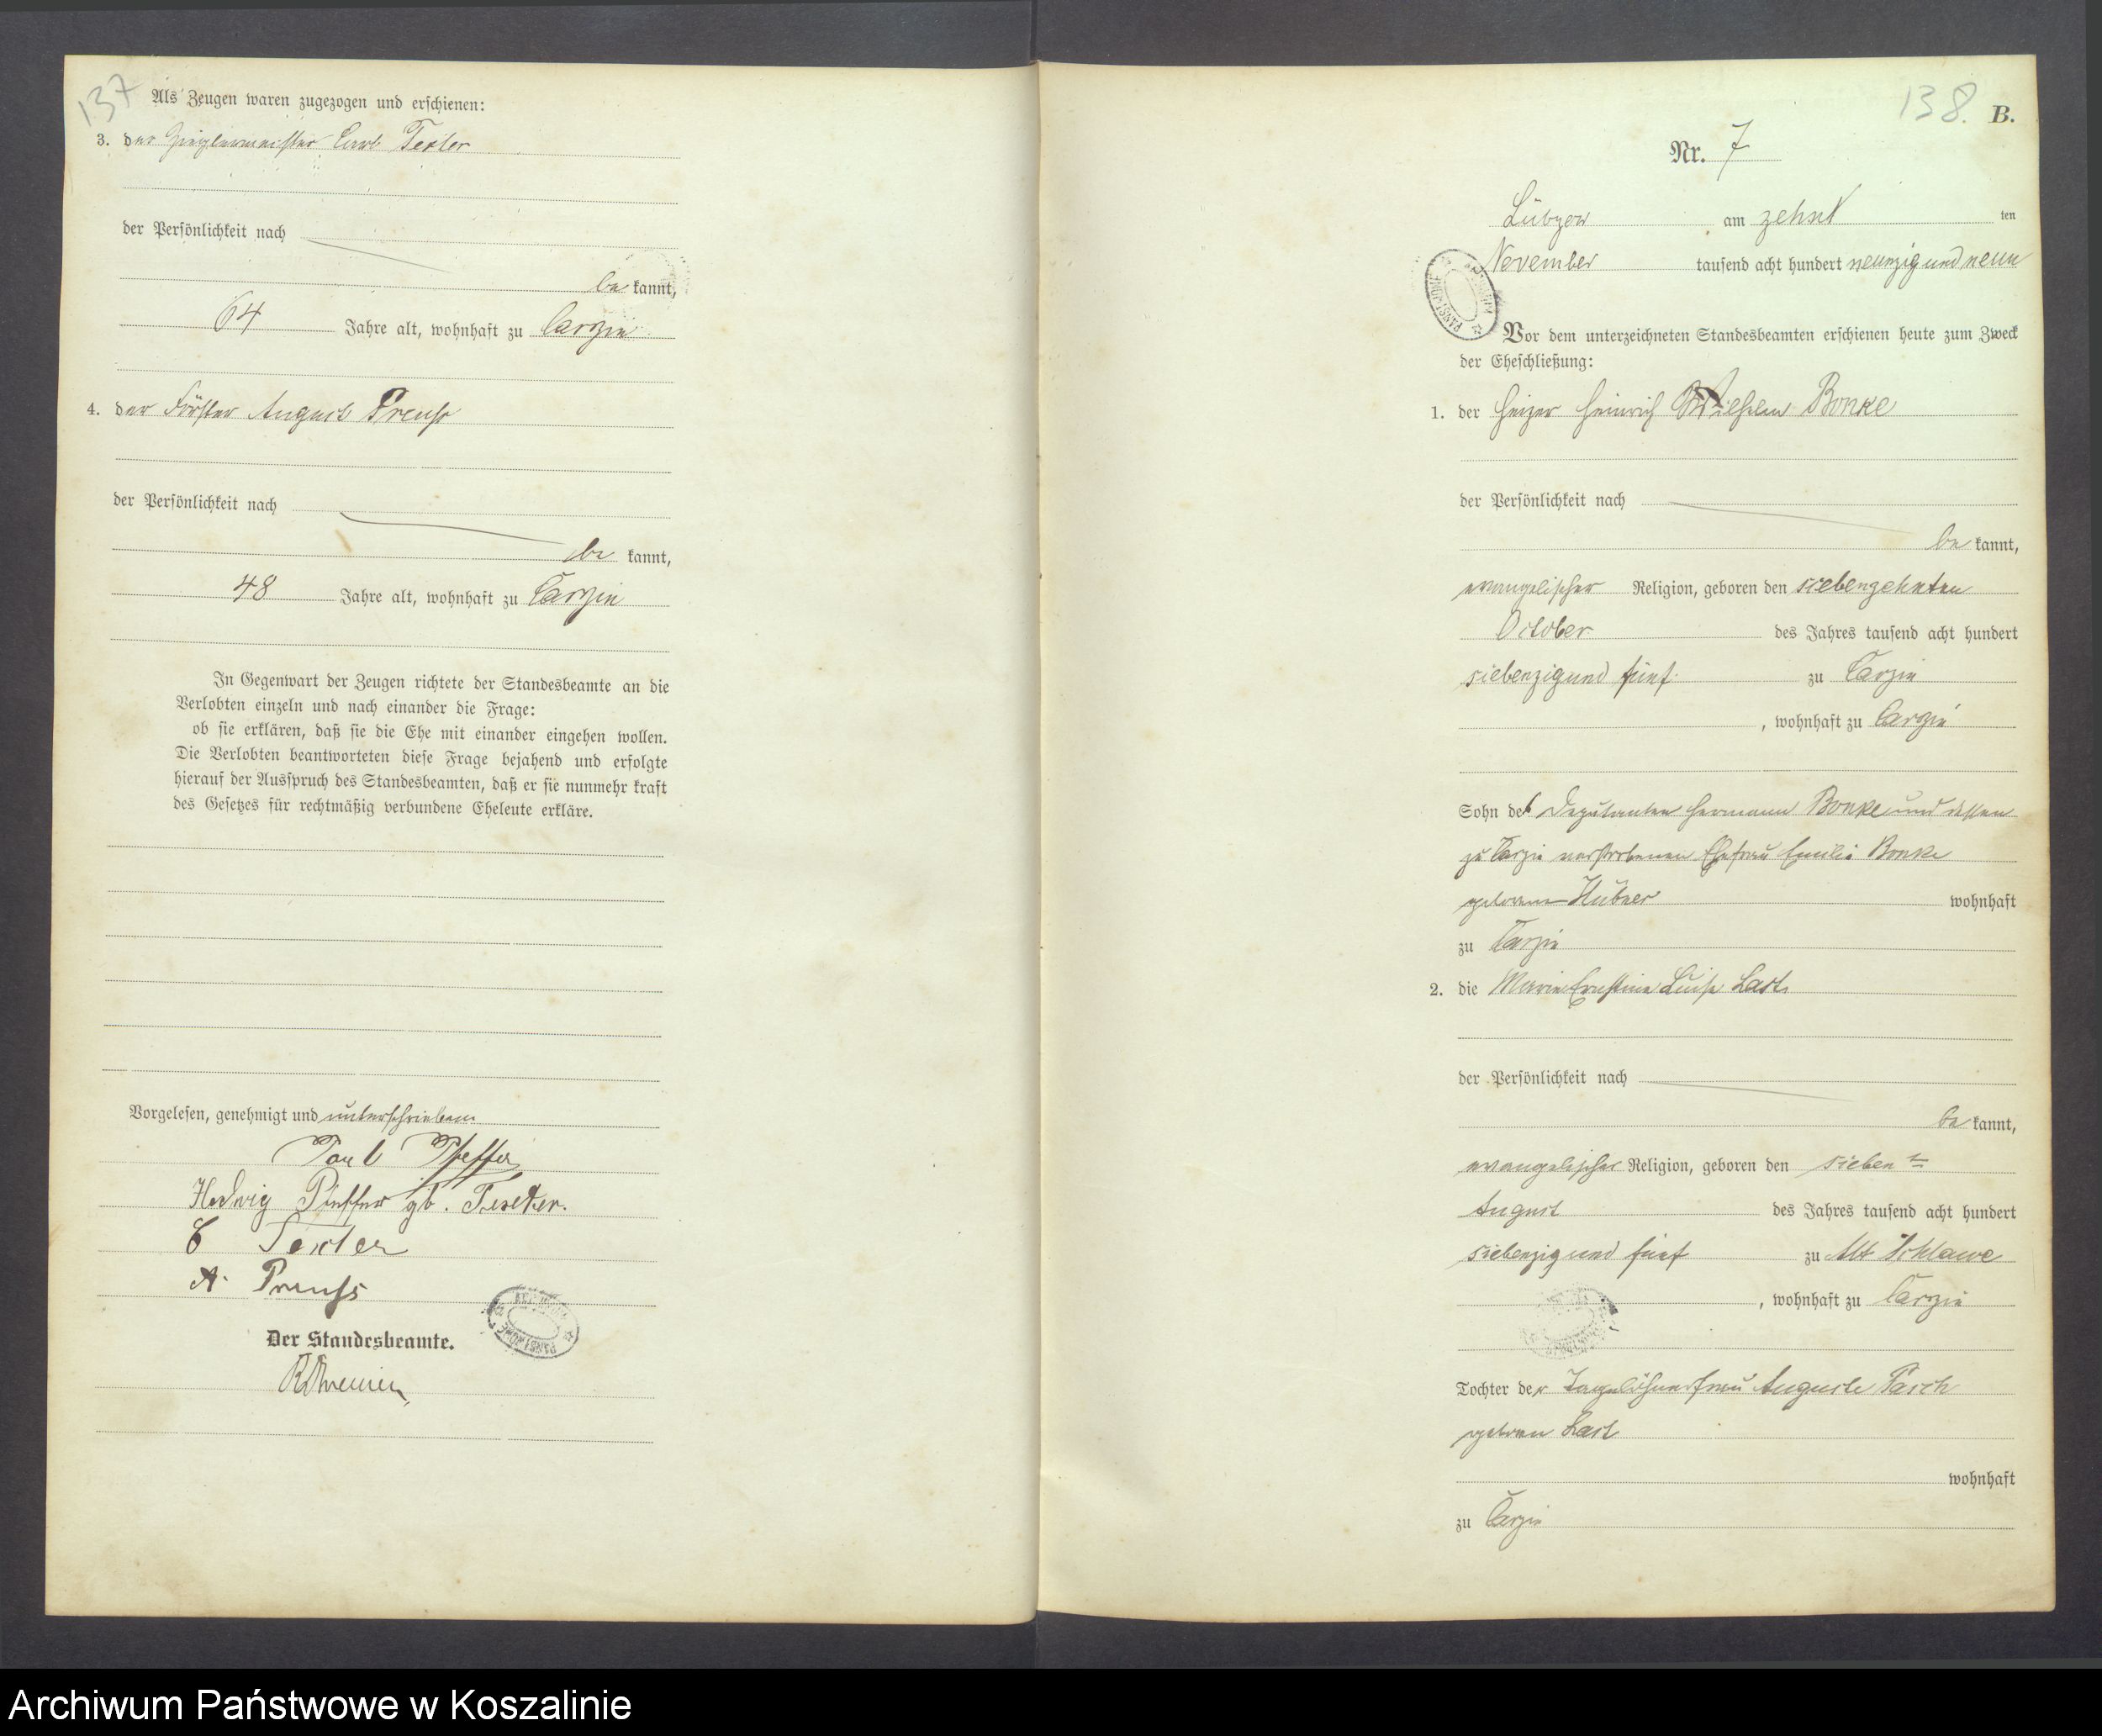 137
Als Zeugen waren zugezogen und erschienen:
3. der Zieglermeister Carl Texter
der Persönlichkeit nach
be kannt,
64 Jahre alt, wohnhaft zu Carzin
4. der Förster August Preuß
der Persönlichkeit nach
be kannt,
48 Jahre alt, wohnhaft zu Carzin
In Gegenwart der Zeugen richtete der Standesbeamte an die
Verlobten einzeln und nach einander die Frage:
ob sie erklären, daß sie die Ehe mit einander eingehen wollen.
Die Verlobten beantworteten diese Frage bejahend und erfolgte
hierauf der Ausspruch des Standesbeamten, daß er sie nunmehr kraft
des Gesetzes für rechtmäßig verbundene Eheleute erkläre.
Vorgelesen, genehmigt und unterschrieben
Paul Pfeffer
Hedwig Pfeffer gb. Texter.
C Texter
A. Preuß
Der Standesbeamte.
138. B.
Nr. 7
Lübzow am zehnt ten
November tausend acht hundert neunzig und neun
Vor dem unterzeichneten Standesbeamten erschienen heute zum Zweck
der Eheschließung:
1. der Heizer Heinrich Wilhelm Bonke
der Persönlichkeit nach
be kannt,
evangelischer Religion, geboren den siebenzehnten
October des Jahres tausend acht hundert
siebenzig und fünf zu Carzin
, wohnhaft zu Carzin
Sohn des Deputanten Hermann Bonke und dessen
zu Carzin verstorbenen Ehefrau Emilie Bonke
geborene Hübner wohnhaft
zu Carzin
2. die Marie Ernstine Luise Last
der Persönlichkeit nach
be kannt,
evangelischer Religion, geboren den sieben ten
August des Jahres tausend acht hundert
siebenzig und fünf zu Alt Schlawe
, wohnhaft zu Carzin
Tochter der Tagelöhnerfrau Auguste Pasch
geboren Last
wohnhaft
zu Carzin
Archiwum Państwowe w Koszalinie